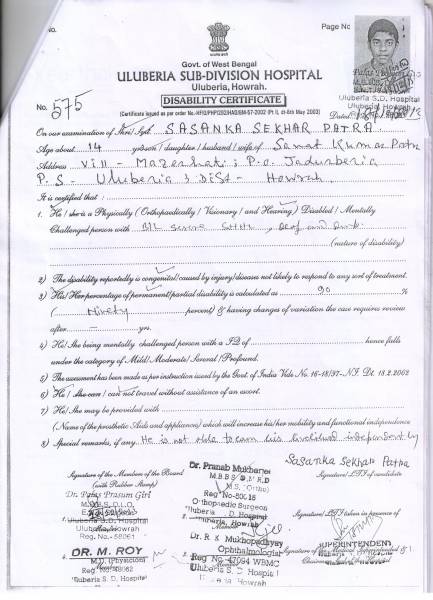 No.
Page No
Govt. of West Bengal
ULUBERIA SUB-DIVISION HOSPITAL
Uluberia, Howrah.
DISABILITY CERTIFICATE
No. 575
Uluberia S.D. Hospital
Uluberia, Howrah
On our examination of Shri/Smt. SASANKA SEKHAR PATRA
Age about 14 yrs son / daughter / husband / wife of Samat Kumar Patra
Address Vill - Mazerhati; P.O. Jadurberia
P.S - Uluberia ; Dist - Howrah.
It is certified that :
1. He / she is a Physically ( Orthopaedically / Visionary / and Hearing ) Disabled / Mentally
Challenged person with B/L severe SNHL, Deaf and Dumb
(nature of disability)
2) The disability reportedly is congenital / caused by injury / disease not likely to respond to any sort of treatment.
3) His / Her percentage of permanent / partial disability is calculated as 90 %
( Ninety percent) & having chances of variation the case requires review
after - yrs.
4) He / She being mentally challenged person with a I.Q of hence falls
under the category of Mild / Moderate / Several / Profound.
5) The assessment has been made as per instruction issued by the Govt. of India Vide No. 16-18/97-NI. Dt. 18.2.2002
6) He / She can / can not travel without assistance of an escort.
7) He / She may be provided with
(Name of the prosthetic Aids and appliances) which will increase his / her mobility and functional independence
8) Special remarks, if any. He is not able to earn his livelihood independently
Sasanka Sekhar Patra
Signature / LTI of candidate
Signature of the Members of the Board
(with Rubber Stamp)
Dr. Pranab Mukharjee
M.S. (Ortho)
Orthopaedic Surgeon
Uluberia S. D. Hospital
Uluberia, Howrah.
Dr. Palas Prasum Giri
M.B.B.S, D.L.O.
Uluberia S.D. Hospital
Uluberia, Howrah
Reg. No.-58061
Signature / LTI taken in presence of
Dr. R K Mukhopadhyay
Ophthalmologist
Reg No 47094 WBMC
Uluberia S.D. Hospital
Uluberia Howrah
4. DR. M. ROY
M.D. (Physician)
Uluberia S. D. Hospital
SUPERINTENDENT